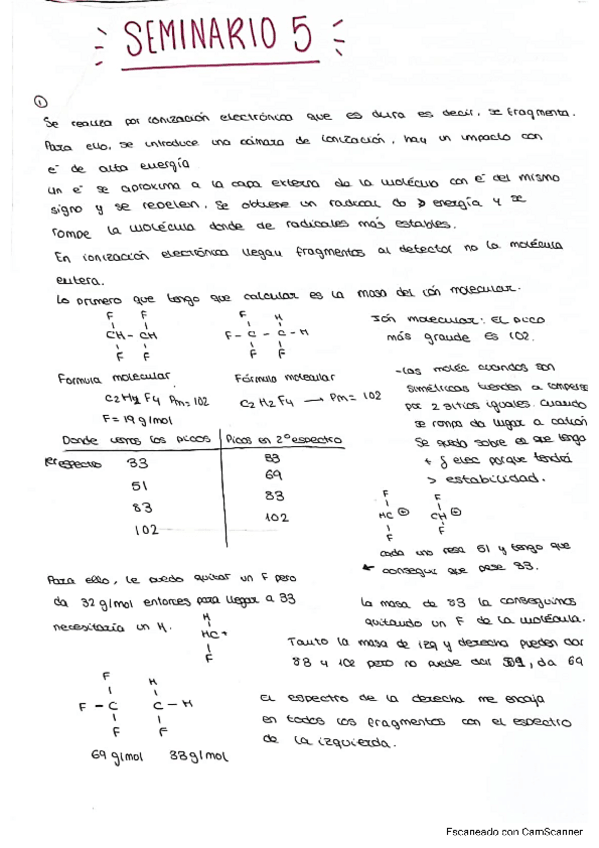 SEMINARIO 5
①
Se realiza por ionización electrónica que es dura es decir, se fragmenta.
Para ello, se introduce una cámara de ionización, hay un impacto con
e⁻ de alta energía
Un e⁻ se aproxima a la capa externa de la molécula con e⁻ del mismo
signo y se repelen. Se obtiene un radical do > energía y se
rompe la molécula donde de radicales más estables.
En ionización electrónica llegan fragmentos al detector no la molécula
entera.
Lo primero que tengo que calcular es la masa del ión molecular.
F F
CH - CH
F F
F H
F - C - C - H
F F
Ión molecular: El pico
más grande es 102.
Formula molecular
C2H2F4 Pm = 102
F = 19 g/mol
Fórmula molecular
C2H2F4 → Pm = 102
-Las moléc cuando son
simétricas tienden a romperse
por 2 sitios iguales. Cuando
se rompa da lugar a catión
Se quedo sobre el que tenga
+ δ elec porque tendrá
> estabilidad.
Donde vemos los picos Picos en 2º espectro
1er espectro 33 33
51 69
83 83
102 102
F F
HC ⊕ CH ⊕
F F
cada uno pesa 51 y tengo que
← conseguir que pese 33.
Para ello, le puedo quitar un F pero
da 32 g/mol entonces para llegar a 33
necesitaría un H.
H
HC+
F
La masa de 83 la conseguimos
quitando un F de la molécula.
Tanto la masa de izq y derecha pueden dar
83 y 102 pero no puede dar 51, da 69
F H
F - C C - H
F F
69 g/mol 33 g/mol
El espectro de la derecha me encaja
en todos los fragmentos con el espectro
de la izquierda.
Escaneado con CamScanner